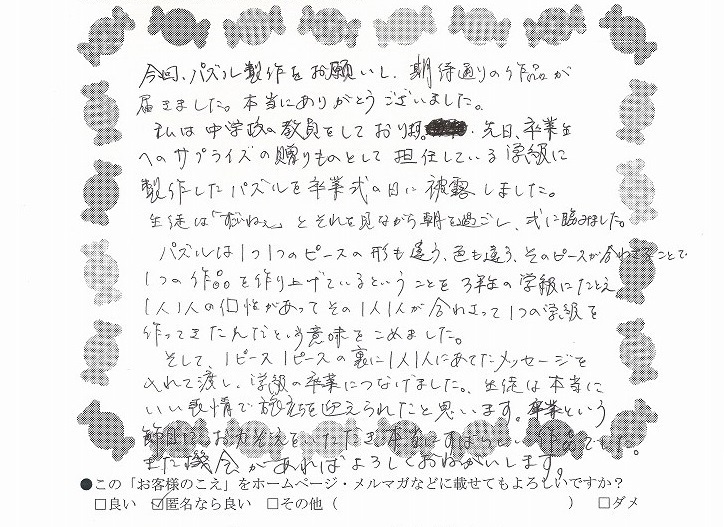 今回、パズル製作をお願いし、期待通りの作品が
届きました。本当にありがとうございました。
私は中学校の教員をしております。先日、卒業生
へのサプライズの贈りものとして担任している学級に
製作したパズルを卒業式の日に披露しました。
生徒は「すごいねぇ」とそれを見ながら朝を過ごし、式に臨みました。
パズルは1つ1つのピースの形も違う、色も違う、そのピースが合わさることで
1つの作品を作り上げているということを3年の学級にたとえ
1人1人の個性があってその1人1人が合わさって1つの学級を
作ってきたんだという意味をこめました。
そして、1ピース1ピースの裏に1人1人にあてたメッセージを
入れて渡し、学級の卒業につなげました。生徒は本当に
いい表情で旅立ちを迎えられたと思います。卒業という
節目に、お力ぞえをいただき本当にすばらしい
また機会があればよろしくおねがいします。
●この「お客様のこえ」をホームページ・メルマガなどに載せてもよろしいですか？
□良い ☑匿名なら良い □その他（ ） □ダメ